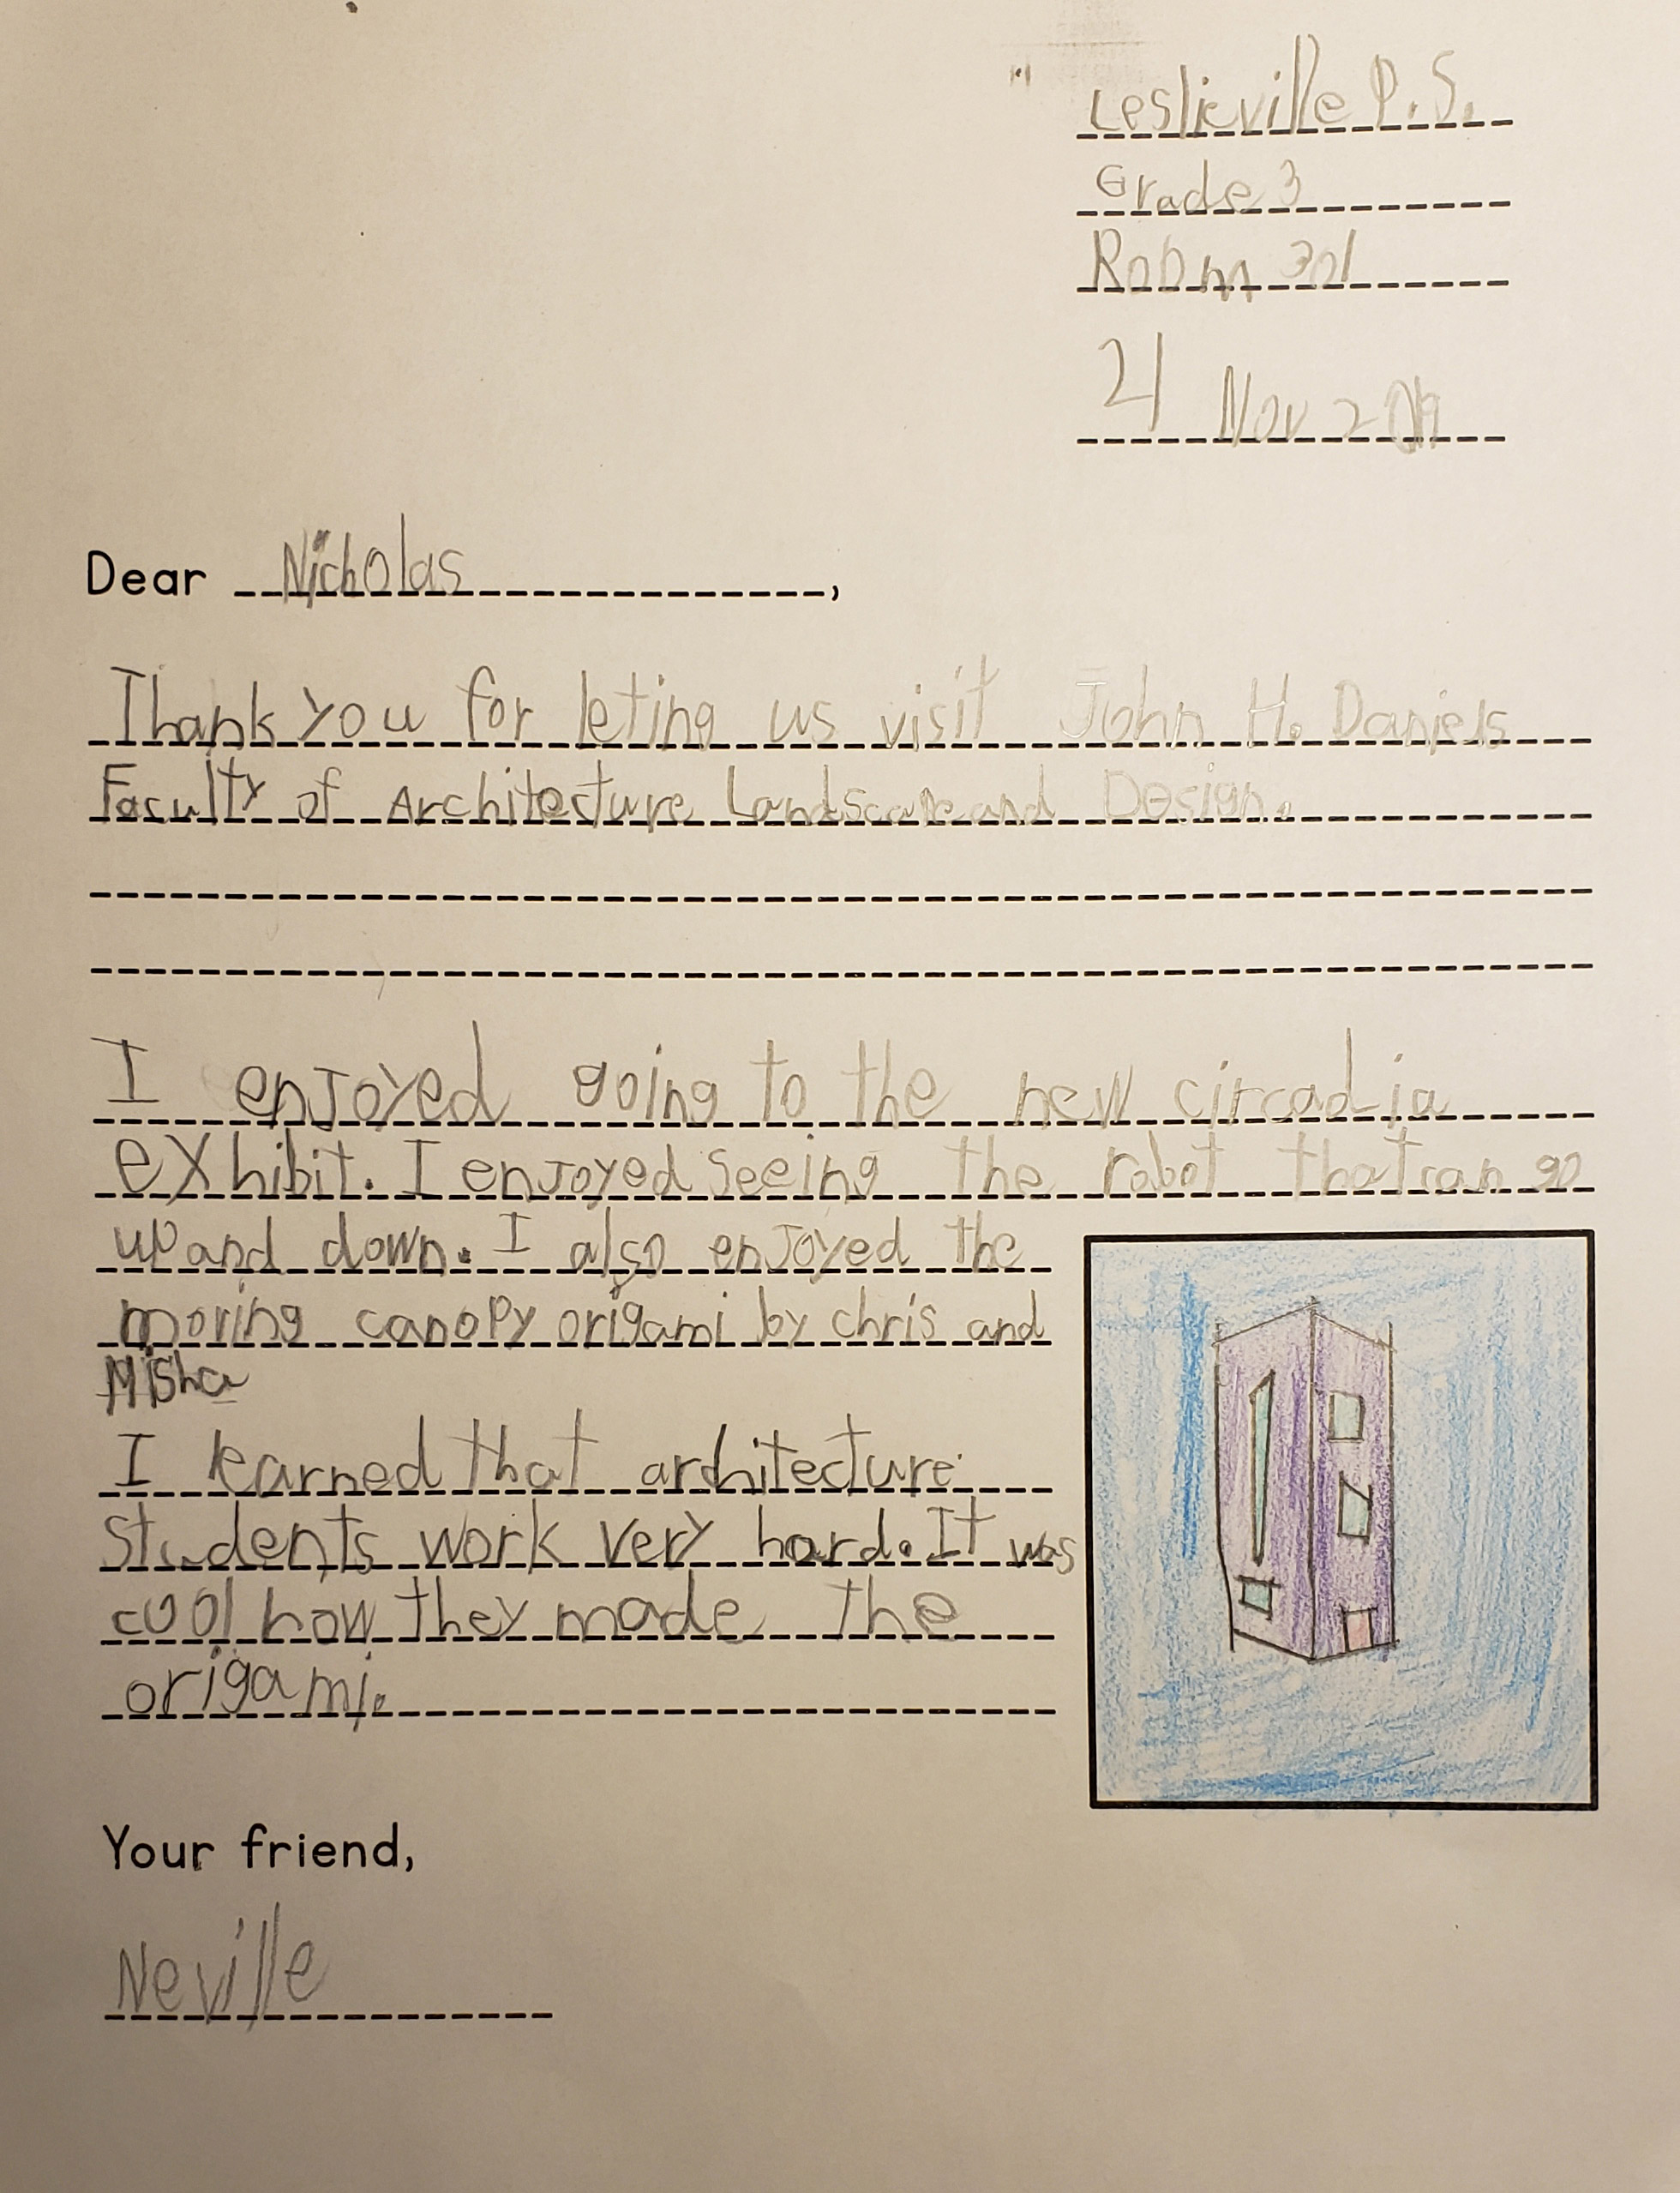 Leslieville P.S.
Grade 3
Room 301
21 Nov 2019
Dear Nicholas,
Thank you for leting us visit John H. Daniels
Faculty of Architecture Landscape and Design.
I enjoyed going to the new circadia
exhibit. I enjoyed seeing the robot that can go
up and down. I also enjoyed the
moving canopy origami by chris and
Misha
I learned that architecture
students work very hard. It was
cool how they made the
origami.
Your friend,
Neville